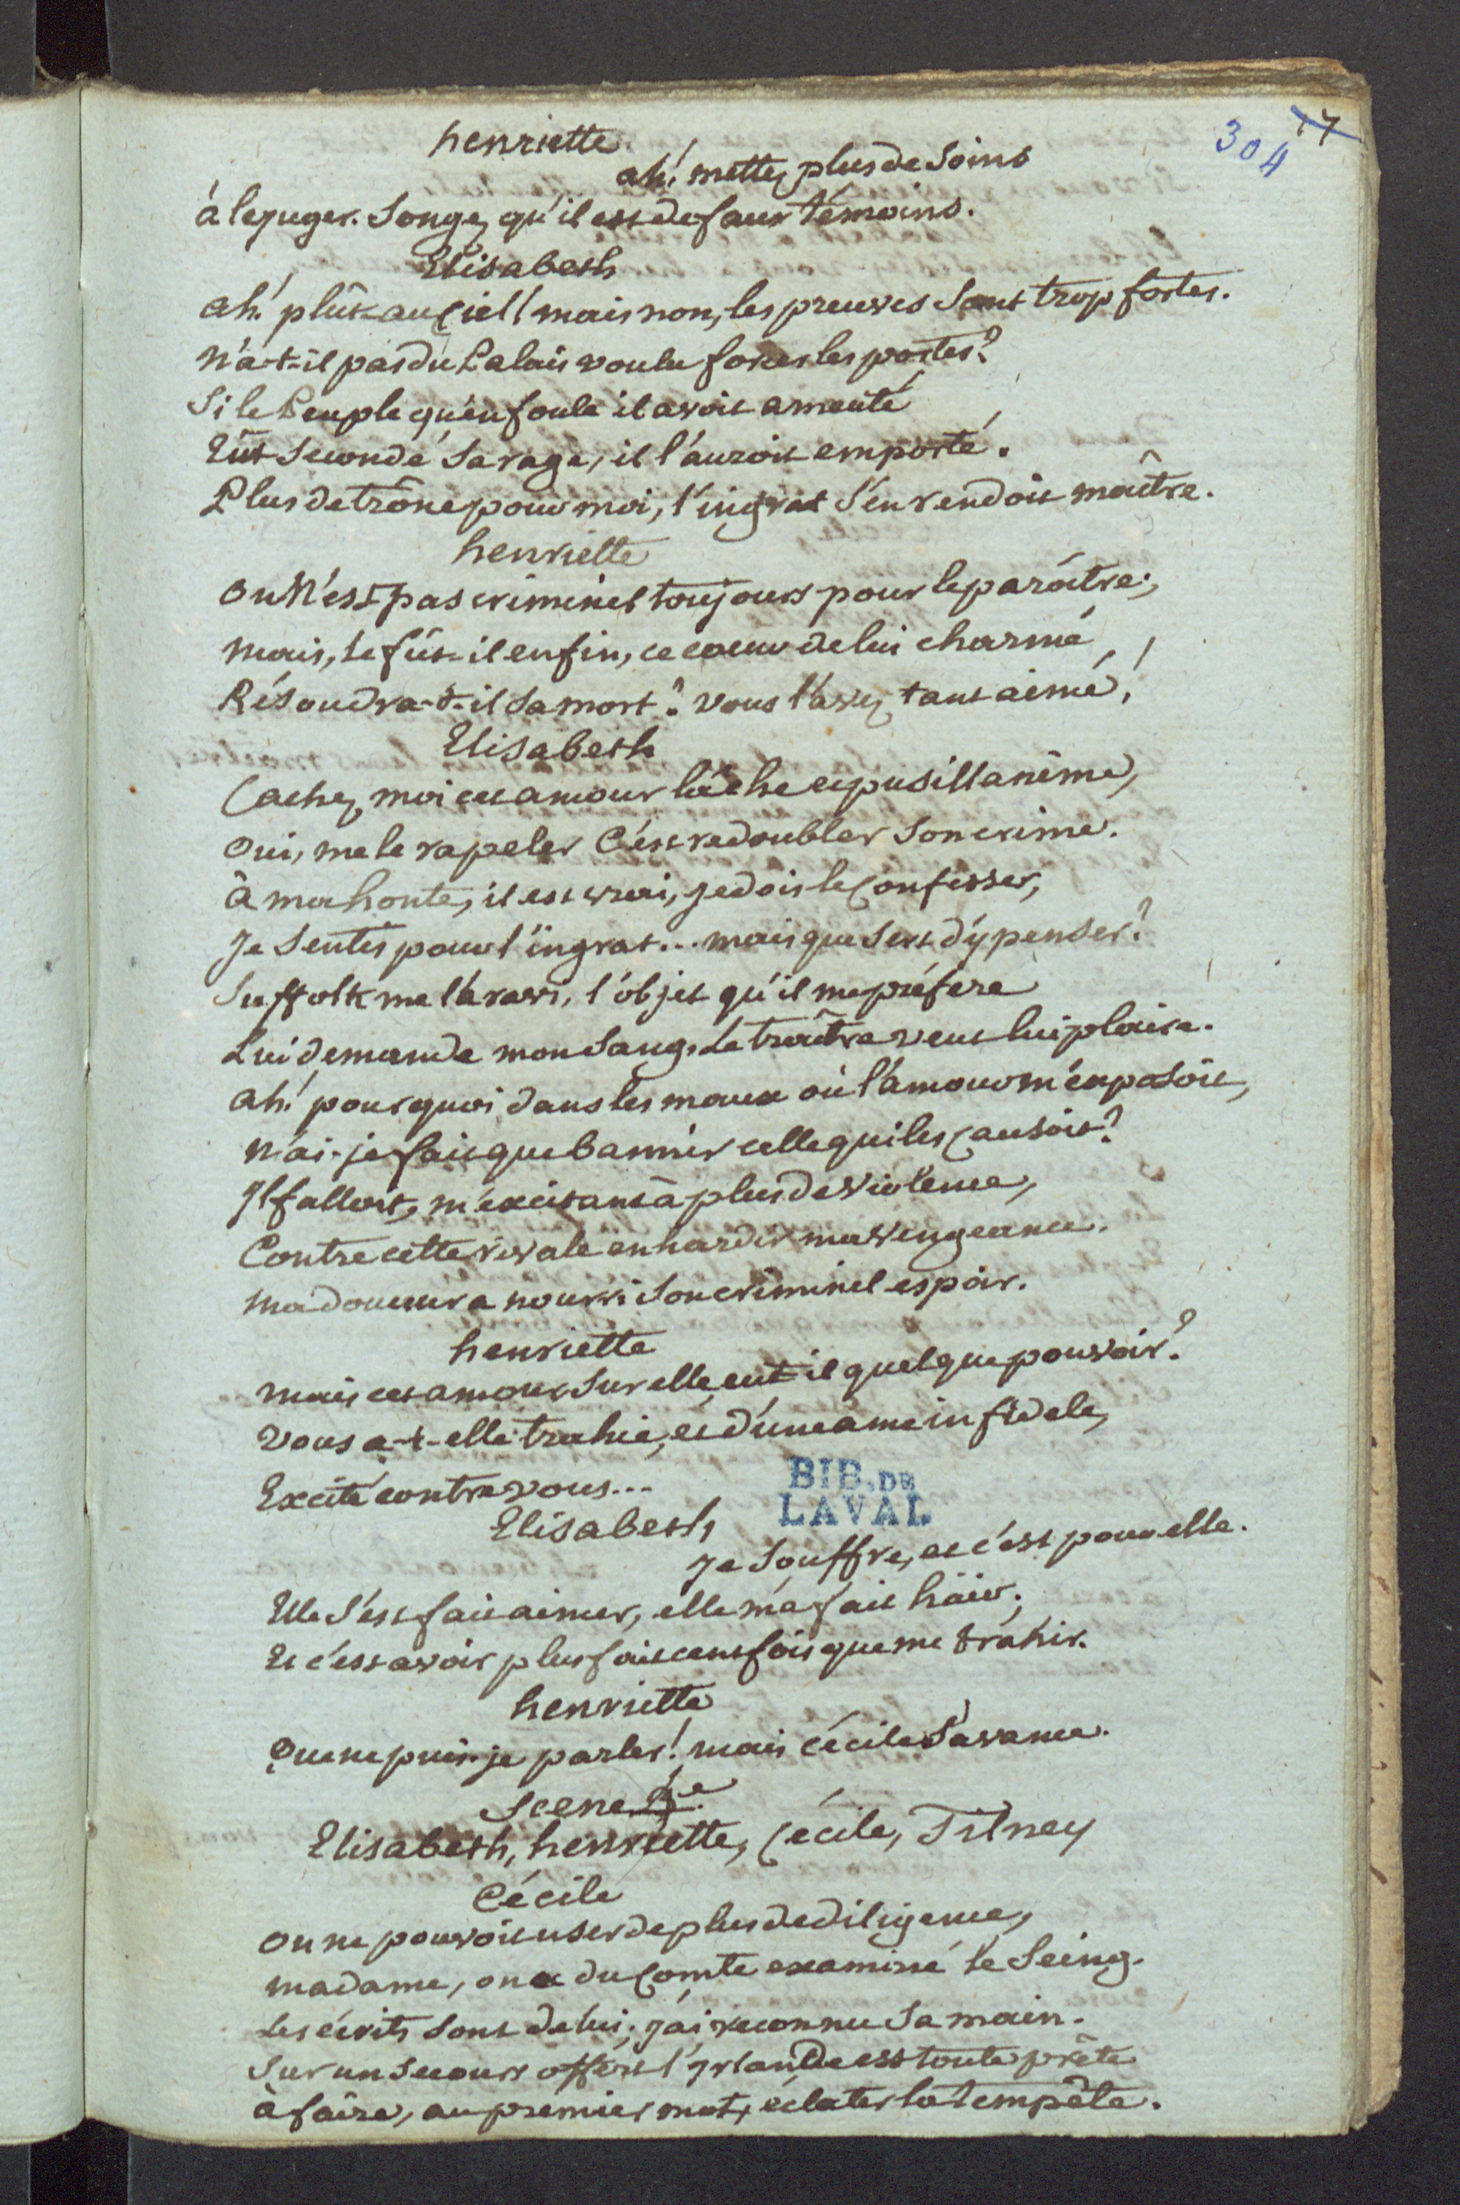 304 17
henriette
ah! mettez plus de Soins
à le juger. Songez qu'il est de faux témoins.
Elisabeth
ah! plût au Ciel! mais non, les preuves Sont trop fortes.
N'a-t-il pas du Palais voulu forcer les portes?
Si le Peuple qu'en foule il avoit ameuté
Eût Secondé Sa rage, il l'auroit emporté.
Plus de trône pour moi, l'ingrat S'en rendoit maître.
henriette
on N'est pas criminel toujours pour le paraître;
mais, le fût-il enfin, ce coeur de lui charmé,
Résoudra-t-il Sa mort? vous l'avez tant aimé!
Elisabeth
Cachez moi cet amour lâche et pusillanime,
Oui, me le rapeler C'est redoubler Son crime.
à ma honte, il est vrai, je dois le Confesser,
Je Sentis pour l'ingrat... mais que Sert d'y penser?
Suffolk me l'a ravi, l'objet qu'il me préfere
Lui demande mon Sang, Le traître veut lui plaire.
ah! pourquoi dans les maux où l'amour m'exposoit,
N'ai-je fait que bannir celle qui les Causoit?
Il falloit, m'excitant à plus de violence,
Contre cette rivale enhardir ma vengeance.
Ma douceur a nourri Son criminel espoir.
henriette
mais cet amour Sur elle eut-il quelque pouvoir?
Vous a-t-elle trahie, et d'une ame infidele,
Excité contre vous...
BIB. DE
LAVAL
Elisabeth
Je Souffre, et c'est pour elle.
Elle S'est fait aimer, elle m'a fait häir;
Et c'est avoir plus fait cent fois que me trahir.
henriette
Que ne puis-je parler! mais Cécile S'avance.
Scene 2e.
Elisabeth, henriette, Cécile, Tilney
Cécile
on ne pouvoit user de plus de diligence,
madame, on a du Comte examiné le Seing.
Les écrits Sont de lui; j'ai reconnu Sa main.
Sur un Secours offert l'Irlande est toute prête
à faire, au premier mot, éclater la tempête.